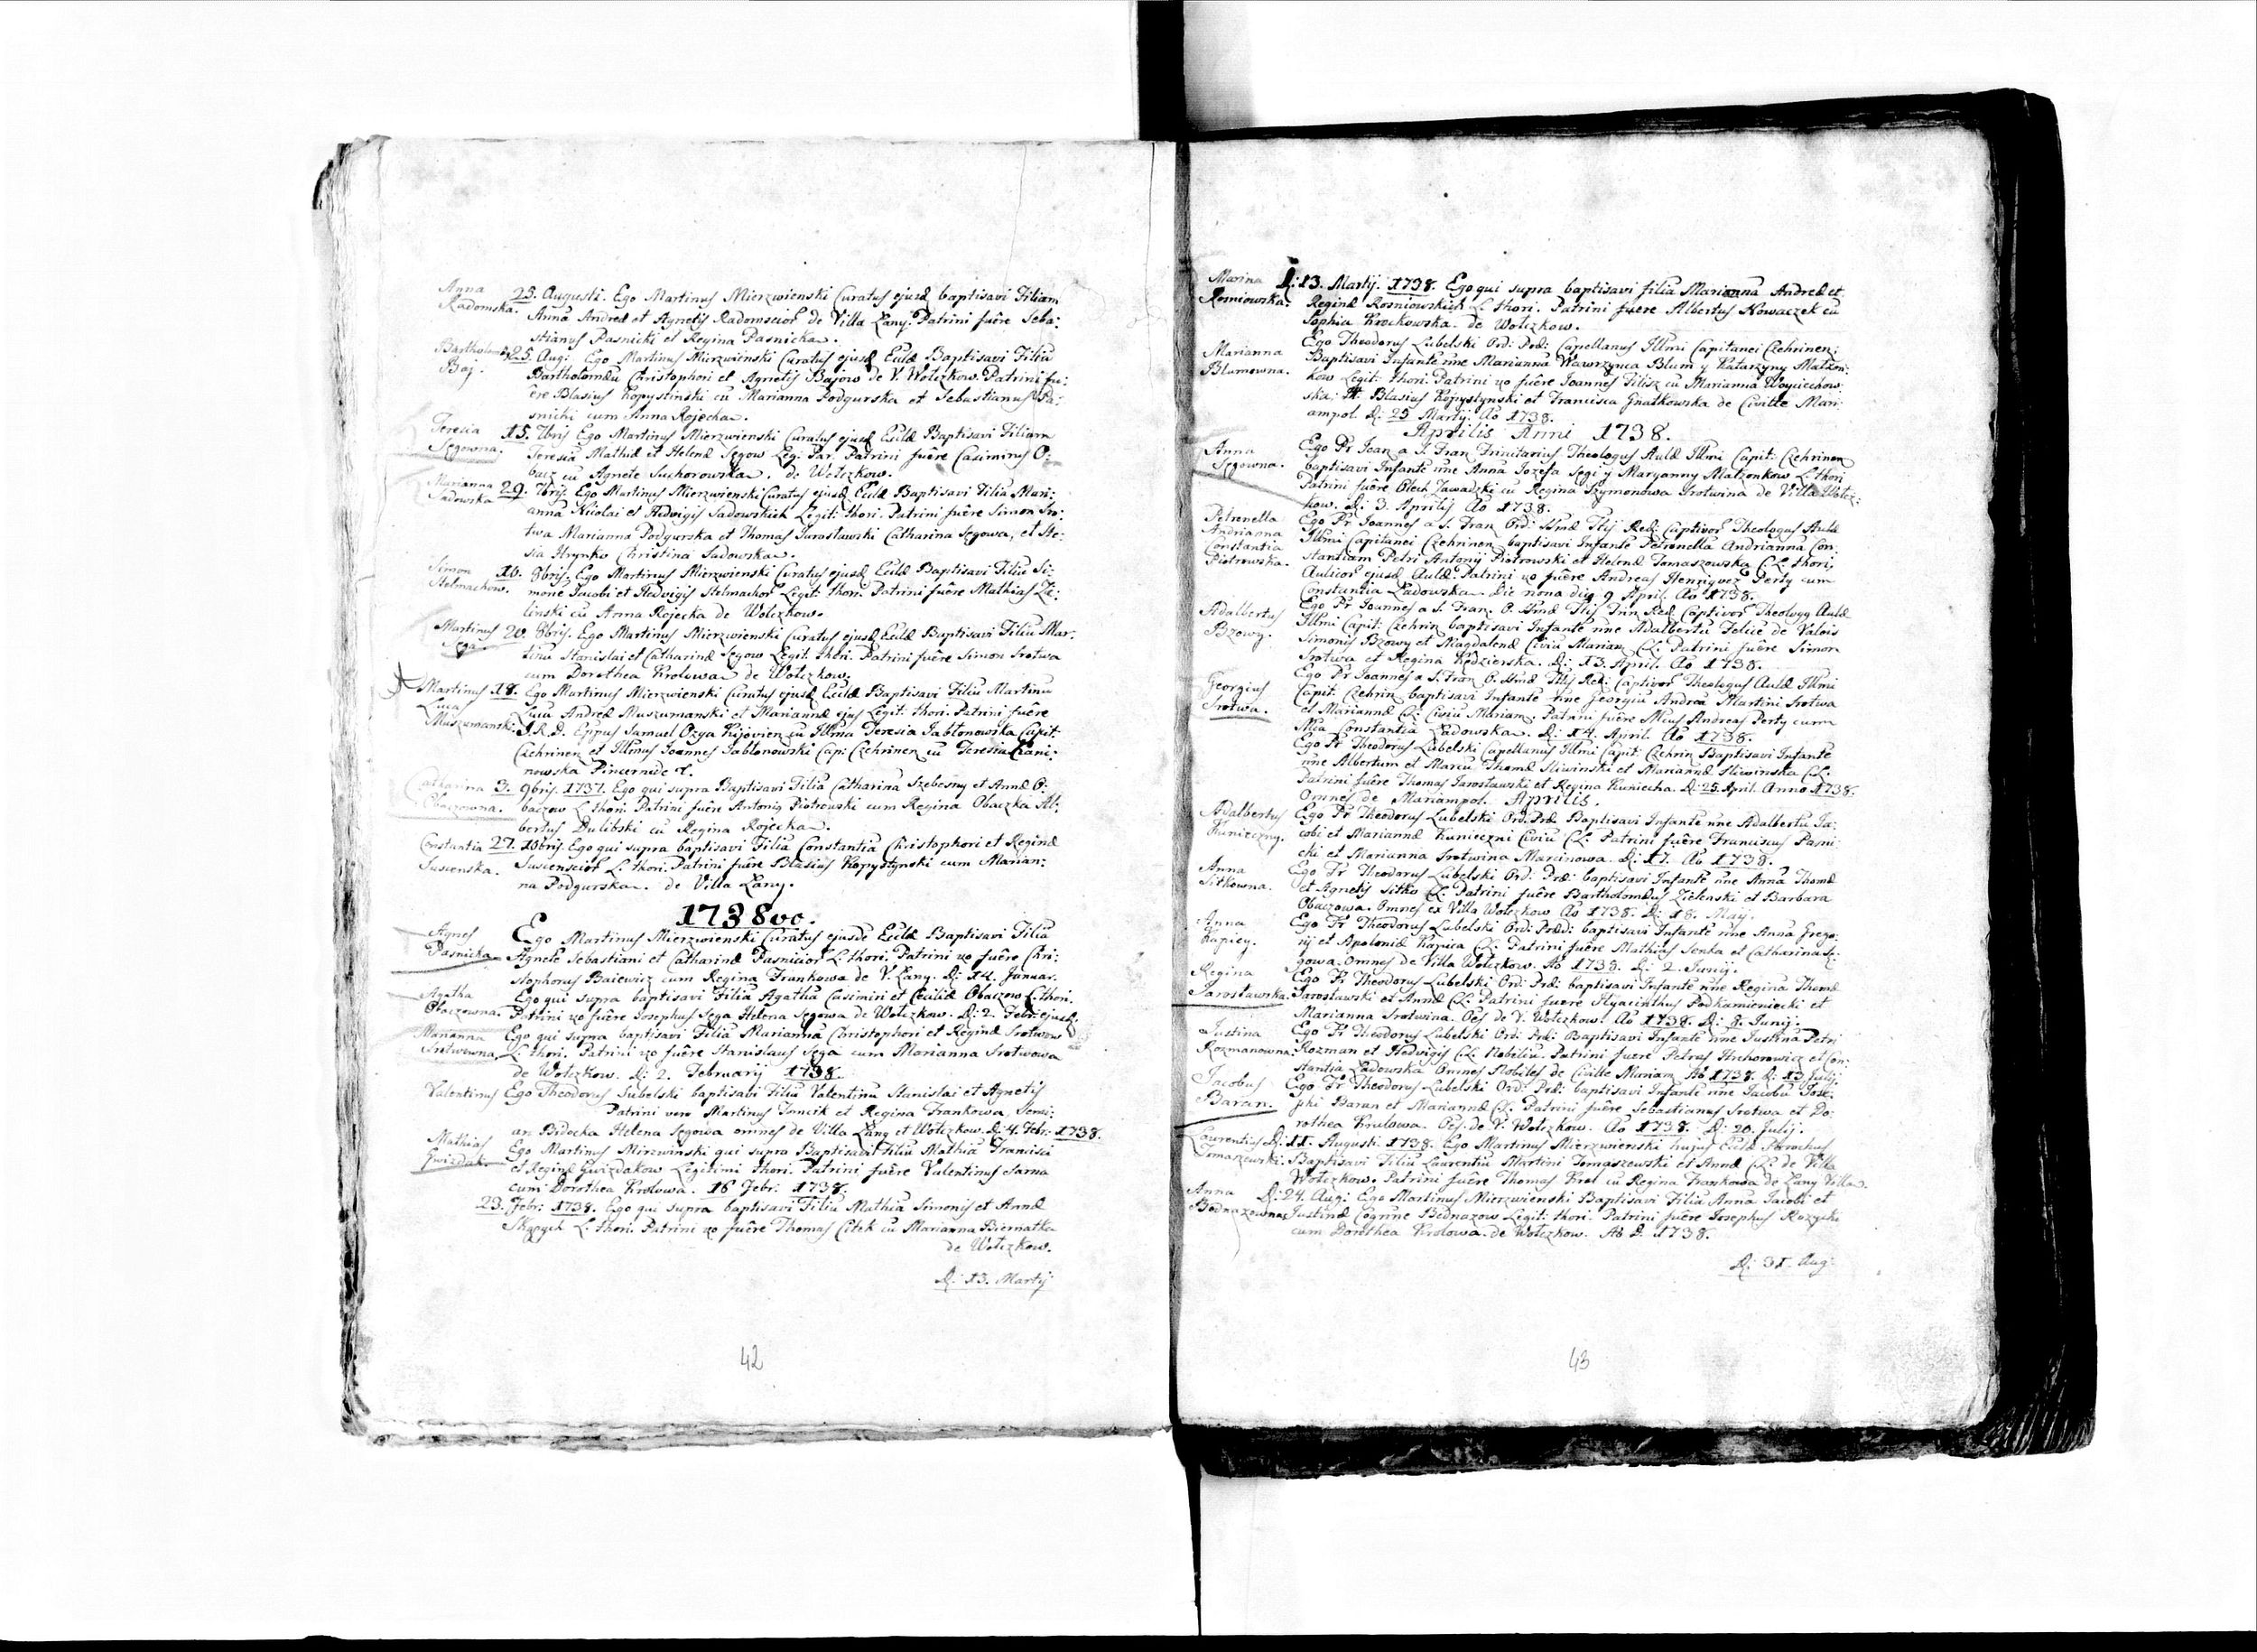 Anna Radomska. 25. Augusti. Ego Martinus Mierzwienski Curatus ejusd baptisavi Filiam
Anna Andreæ et Agnetis Radomscior de Villa Łany. Patrini fuêre Seba:
stianus Pasnicki et Regina Pasnicka.
Bartholom Baj. 25. Aug: Ego Martinus Mierzwinski Curatus ejusd Eccl&æ Baptisavi Filiu
Bartholomæu Christophori et Agnetis Bajow de V. Wołczkow. Patrini fu:
ere Blasius Kopystinski cu Marianna Podgurska et Sebastianus Pa:
snicki cum Anna Rojecka.
Teresia Segowna. 15. 7bris Ego Martinus Mierzwienski Curatus ejusd Eccl&æ Baptisavi Filiam
Teresia Mathiæ et Helenæ Segow Leg: Par. Patrini fuêre Casimirus O:
bacz cu Agnete Suchorowska. de Wołczkow.
Marianna Sadowska 29. 7bris. Ego Martinus Mierzwienski Curatus ejusd Eccl&æ Baptisavi Filia Mari:
anna Nicolai et Hedvigis Sadowskich Legit: thori. Patrini fuêre Simon Sro:
twa Marianna Podgurska et Thomas Jaroslawski Catharina Segowa, et Ste:
sia Hrynko Christina Sadowska.
Simon Stelmachow. 10. 9bris. Ego Martinus Mierzwienski Curatus ejusd Eccl&æ Baptisavi Filiu Si:
mone Jacobi et Hedvigis Stelmachor Legit: thori. Patrini fuêre Mathias Zie:
linski cu Anna Rojecka de Wolczkow.
Martinus Sega. 20. 8bris. Ego Martinus Mierzwienski Curatus ejusd Eccl&æ Baptisavi Filiu Mar:
tinu Stanislai et Catharinæ Segow Legit. thori. Patrini fuêre Simon Srotwa
cum Dorothea Krolowa de Wołczkow.
Martinus Lucas Muszumanski. 18. Ego Martinus Mierzwienski Curatus ejusd Eccl&æ Baptisavi Filiu Martinu
Lucu Andreæ Muszumanski et Mariannæ ejus Legit: thori. Patrini fuêre
I. R. D. Eppus Samuel Ozga Kijovien cu Illma Teresia Jabłonowska Capit:
Czehrinen et Illmus Joannes Jabłonowski Cap: Czehrinen cu Teresia
nowska Pincernide
Catharina Obaczowna. 3. 9bris. 1737. Ego qui supra Baptisavi Filia Catharina Szebesny et Annæ O:
baczow L. thori. Patrini fuêre Antonig Piotrowski cum Regina Obaczka Al:
bertus Dulibski cu Regina Rojecka.
Constantia Susienska. 27. 10bris. Ego qui supra baptisavi Filia Constantia Christophori et Reginæ
Susienscior L. thori. Patrini fuêre Blasius Kopystynski cum Marian:
na Podgurska. de Villa Łany.
1738vo.
Agnes Pasnicka Ego Martinus Mierzwienski Curatus ejusde Eccl&æ Baptisavi Filia
Agnete Sebastiani et Catharinæ Pasnicior L. thori. Patrini vo fuêre Chri:
stophorus Baiewicz cum Regina Frankowa de V. Łany. D: 14. Januar.
Agatha Obaczowna. Ego qui supra baptisavi Filia Agatha Casimiri et Ceciliæ Obaczow L. thori.
Patrini vo fuêre Josephus Sega Helena Segowa de Wołczkow. D: 2. Febr: ejusd.
Marianna Srotwowna, Ego qui supra baptisavi Filia Marianna Christophori et Reginæ Srotwow
L. thori. Patrini vo fuêre Stanislaus Sega cum Marianna Srotwowa
de Wołczkow. D: 2. Februarij 1738.
Valentinus Ego Theodorus Lubelski baptisavi Filiu Valentinu Stanislai et Agnetis
Patrini vero Martinus Jancik et Regina Frankowa,
an Bidocka Helena Segowa omnes de Villa Łany et Wołczkow. D: 4. Febr: 1738.
Mathias Gwizdak. Ego Martinus Mirzwinski qui supra Baptisavi Filiu Mathia Francisci
et Reginæ Gwizdakow Legitimi thori. Patrini fuêre Valentinus Sarna
cum Dorothea Krolowa. 16 Febr: 1738.
23. Febr: 1738. Ego qui supra baptisavi Filiu Mathia Simonis et Annæ
L. thori. Patrini vo fuêre Thomas Citek cu Marianna Biernatka
de Wołczkow.
D: 13. Martij
42
Marina Rosniowska. D: 13. Martij. 1738. Ego qui supra baptisavi filia Marianna Andreæ et
Reginæ Rosniowskich L. thori. Patrini fuere Albertus Nowaczek cu
Sophia Krockowska. de Wołczkow.
Marianna Blumowna. Ego Theodorus Lubelski Ord: Præd: Capellanus Illmi Capitanei Czehrinen:
Baptisavi Infante nne Marianna Wawrzynca Blum y Katarzyny Małżon:
kow Legit: thori. Patrini vo fuêre Joannes Filisz cu Marianna Woyciechow
ska; Blasius Kopystynski et Francisca Gnatkowska de Civitte Mari:
ampol. D: 25 Martij. Ao 1738.
Aprilis Anni 1738.
Anna Segowna. Ego Fr Joan a S. Fran Trinitarius Theologus Aulæ Illmi Capit: Czehrinen
baptisavi Infante nne Anna Jozefa Segi y Maryanny Małzonkow L. thori
Patrini fuêre Olech Zawadzki cu Regina Szymonowa Srotwina de Villa Wołcz:
kow. D: 3. Aprilis Ao 1738.
Petronella Andrianna Constantia Piotrowska. Ego Fr Joannes a S. Fran Ord: SSmæ Tris Red: Captivor Theologus Aulæ
Illmi Capitanei Czehrinen, baptisavi Infante Petronella Andrianna Con:
stantiam Petri Antonij Piotrowski et Helenæ Tomaszowska C. L. thori,
Aulicor ejusd Aulæ: Patrini vo fuêre Andreas Henriquez Perty cum
Constantia Ładowska. Die nona dig 9 April. Ao 1738.
Adalbertus Bzowy. Ego Fr Joannes a S. Fran. O. SSmæ Tris Trin Red. Captivor Theologg Aulæ
Illmi Capit: Czehrin baptisavi Infante nne Adalbertu Felice de Valois
Simonis Bzowy et Magdalenæ Civiu Mariam, CL. Patrini fuêre Simon
Srotwa et Regina Kedzierska. D: 13. April. Ao 1738.
Georgius Srotwa. Ego Fr Joannes a S. Fran O. SSmæ Tris Red: Captivor Theologus Aulæ Illmi
Capit: Czehrin baptisavi Infante nne Georgiu Andrea Martini Srotwa
et Mariannæ CL: Civiu Mariam: Patrini fuêre Mcus Andreas Perty cum
Mca Constantia Ładowska. D: 14. April. Ao 1738.
Ego Fr Theodorus Lubelski Capellanus Illmi Capit: Czehrin Baptisavi Infante
nne Albertum et Marcu Thomæ Sliwinski et Mariannæ Sliwinska CL.
Patrini fuêre Thomas Jarosławski et Regina Kuniecka. D: 25. April. Anno 1738.
Omnes de Mariampol. Aprilis.
Adalbertus Kuniczny. Ego Fr Theodorus Lubelski Ord: Præd: Baptisavi Infante nne Adalbertu Ja:
cobi et Mariannæ Kunieczni Civiu CL. Patrini fuêre Franciscus Pasni
cki et Marianna Srotwina Marcinowa. D: 17. Ao 1738.
Anna Sitkowna. Ego Fr Theodorus Lubelski Ord: Præ: baptisavi Infante nne Anna Thomæ
et Agnetis Sitko CL. Patrini fuêre Bartholomæus Zielenski et Barbara
Obaczowa. Omnes ex Villa Wołczkow. Ao 1738. D: 18. Maij.
Anna Kapicy. Ego Fr Theodorus Lubelski Ord: Præd: baptisavi Infante nne Anna Grego:
rij et Apoloniæ Kapica CL. Patrini fuêre Mathias Senka et Catharina Se:
gowa. Omnes de Villa Wołczkow. Ao 1738. D: 2. Junij.
Regina Jarosławska. Ego Fr Theodorus Lubelski Ord: Præ: baptisavi Infante nne Regina Thomæ
Jarosławski et Annæ CL. Patrini fuere Hyacinthus Podkamieniecki et
Marianna Srotwina. Oes de V. Wołczkow. Ao 1738. D: 8. Junij.
Justina Rozmanowna. Ego Fr Theodorus Lubelski Ord: Præ: Baptisavi Infante nne Justina Petri
Rozman et Hedvigis CL. Nobiliu. Patrini fuere Petrus Hrehorowicz et Con:
stantia Ładowska Omnes Nobiles de Civitte Mariam. Ao 1738. D: 13 Julij.
Jacobus Baran. Ego Fr Theodorus Lubelski Ord: Præ: baptisavi Infante nne Jacobu Jose:
phi Baran et Mariannæ CL. Patrini fuêre Sebastianus Srotwa et Do:
rothea Krulowa. Oes. de V. Wołczkow. Ao 1738. D: 20. Julij.
Laurentius Tomaszewski. D: 11. Augusti. 1738. Ego Martinus Mierzwienski hujus Eccl&æ Parochus
Baptisavi Filiu Laurentiu Martini Tomaszewski et Annæ CL. de Villa
Wołczkow. Patrini fuêre Thomas Krol cu Regina Frankowa de Łany Villa.
Anna Bednazowna. D: 24. Aug: Ego Martinus Mierzwienski Baptisavi Filia Anna Jacobi et
Justinæ Cognne Bednazow Legit: thori. Patrini fuêre Josephus Rozycki
cum Dorothea Krolowa. de Wołczkow. Ao D. 1738.
D: 31. Aug:
43